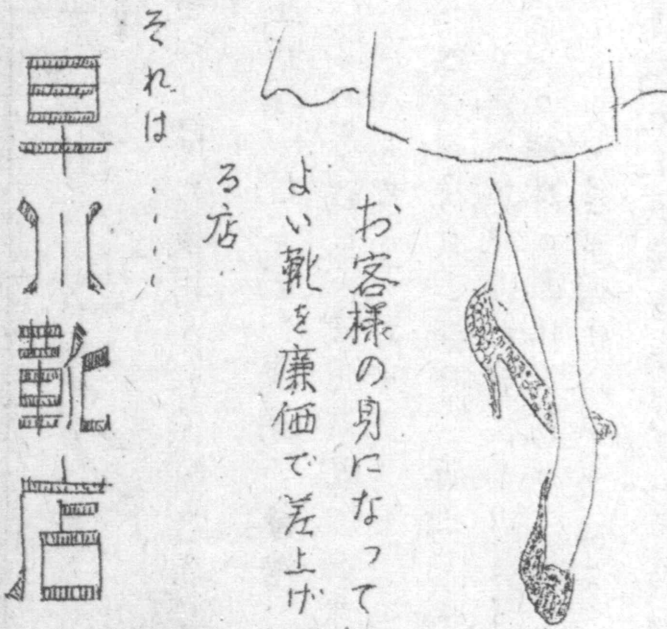 お客様の身になって
よい靴を廉価で差上げ
る店
それは・・・・
早川靴店